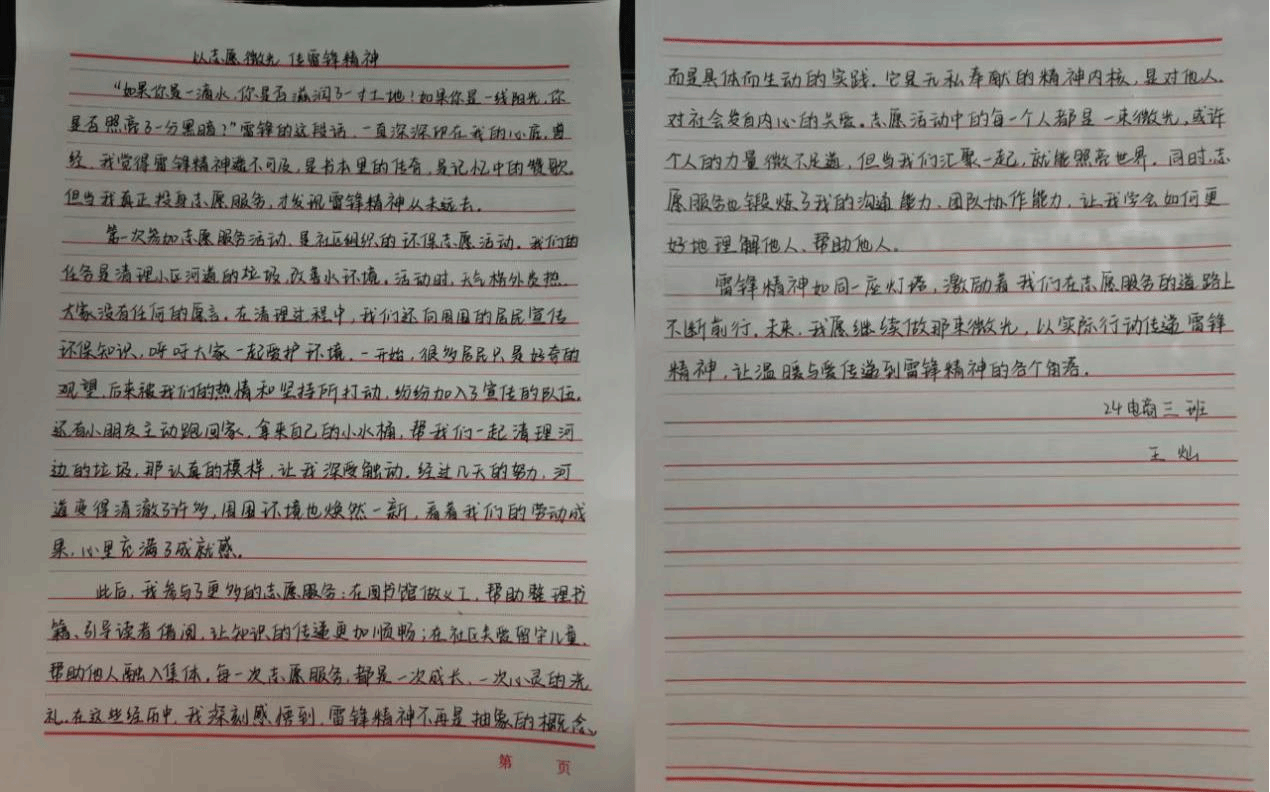 以志愿微光 传雷锋精神
“如果你是一滴水,你是否滋润了一寸土地!如果你是一线阳光,你
是否照亮了一分黑暗?”雷锋的这段话,一直深深印在我的心底,曾
经,我觉得雷锋精神遥不可及,是书本里的传奇,是记忆中的赞歌。
但当我真正投身志愿服务,才发现雷锋精神从未远去。
第一次参加志愿服务活动,是社区组织的环保志愿活动。我们的
任务是清理小区河道的垃圾,改善水环境。活动时,天气格外炎热,
大家没有任何的愿言。在清理过程中,我们还向周围的居民宣传
环保知识,呼吁大家一起爱护环境。一开始,很多居民只是好奇的
观望,后来被我们的热情和坚持所打动,纷纷加入了宣传的队伍。
还有小朋友主动跑回家,拿来自己的小水桶,帮我们一起清理河
边的垃圾,那认真的模样,让我深受触动。经过几天的努力,河
道变得清澈了许多,周围环境也焕然一新,看着我们的劳动成
果,心里充满了成就感。
此后,我参与了更多的志愿服务:在图书馆做义工,帮助整理书
籍、引导读者借阅,让知识的传递更加顺畅;在社区关爱留守儿童,
帮助他人融入集体。每一次志愿服务,都是一次成长,一次心灵的洗
礼。在这些经历中,我深刻感悟到,雷锋精神不再是抽象的概念、
第 页
而是具体而生动的实践。它是无私奉献的精神内核,是对他人、
对社会发自内心的关爱。志愿活动中的每一个人都是一束微光,或许
个人的力量微不足道,但当我们汇聚一起,就能照亮世界。同时,志
愿服务也锻炼了我的沟通能力、团队协作能力,让我学会如何更
好地理解他人、帮助他人。
雷锋精神如同一座灯塔,激励着我们在志愿服务的道路上
不断前行。未来,我愿继续做那束微光,以实际行动传递雷锋
精神,让温暖与爱传递到雷锋精神的各个角落。
24电商三班
王灿